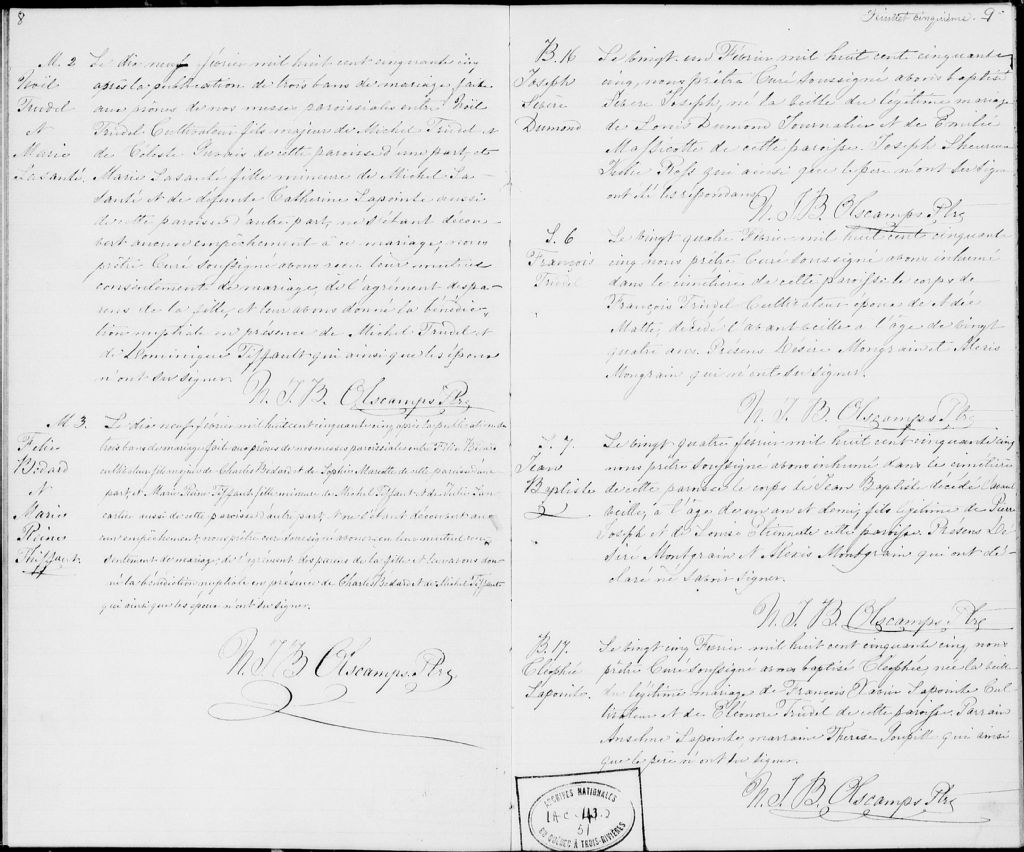 8
M. 2
Noël
Trudel
&
Marie
Lasanté.
Le dix neuf février mil huit cent cinquante cinq
après la publication de trois bans de mariage, faite
aux prônes de nos messes paroissiales entre Noël
Trudel Cultivateur fils majeur de Michel Trudel &
de Céleste de cette paroisse d'une part, et
Marie Lasanté fille mineure de Michel La-
santé et de défunte Catherine Lapointe aussi
de cette paroisse d'autre part, ne s'étant décou-
vert aucun empêchement à ce mariage, nous
prêtre Curé soussigné avons reçu leur mutuel
consentement de mariage, de l'agrément des pa-
rens de la fille, et leur avons donné la bénédic-
tion nuptiale en présence de Michel Trudel et
de Dominique Tiffault qui ainsi que les époux
n'ont su signer.
N. J. B. Olscamps Ptre
M 3.
Félix
Bédard
&
Marie
Reine
Thiffaut.
Le dix neuf février mil huit cent cinquante cinq après la publication de
trois bans de mariage fait aux prônes de nos messes paroissiales entre Félix Bédard
cultivateur fils majeur de Charles Bedard et de Sophie Mariotte de cette paroisse d'une
part, et Marie Reine Tiffaut fille mineure de Michel Tiffaut et de Julie Lan-
cartier aussi de cette paroisse d'autre part, et ne s'étant découvert au-
cun empêchement nous prêtre curé soussigné avons reçu leur mutuel con-
sentement de mariage, de l'agrément des parens de la fille et leur avons don-
né la bénédiction nuptiale en présence de Charles Bedard et de Michel Tiffault
qui ainsi que les époux n'ont su signer.
N. J. B. Olscamps Ptre
Feuillet cinquième. 9
B. 16
Joseph
Sévère
Dumond
Le vingt un Février mil huit cent cinquante
cinq, nous prêtre Curé soussigné avons baptisé
Sévère Joseph, né la veille du légitime mariage
de Louis Dumond Journalier et de Emélie
Massicotte de cette paroisse. Joseph Lheureux
Ross qui ainsi que le père n'ont su signer
ont été les répondans.
N. J. B. Olscamps Ptre
S. 6
François
Trudel
Le vingt quatre Février mil huit cent cinquante
cinq nous prêtre Curé soussigné avons inhumé
dans le cimetière de cette paroisse le corps de
François Trudel Cultivateur époux de Adée
Matte, décédé l'avant veille à l'âge de vingt
quatre ans. Présens Désiré Mongrain et Alexis
Mongrain qui n'ont su signer.
N. J. B. Olscamps Ptre
S. 7.
Jean
Baptiste
Le vingt quatre février mil huit cent cinquante cinq
nous prêtre soussigné avons inhumé dans le cimetière
de cette paroisse le corps de Jean Baptiste décédé l'avant
veille, à l'âge de un an et demi, fils légitime de Pierre
Joseph et de Louise Etienne de cette paroisse. Présens Dé-
siré Montgrain et Alexis Montgrain qui ont dé-
claré ne savoir signer.
N. J. B. Olscamps Ptre
B. 17.
Elophée
Lapointe.
Le vingt cinq Février mil huit cent cinquante cinq, nous
prêtre Curé soussigné avons baptisé Elophée née la veille
du légitime mariage de François Xavier Lapointe Cul-
tivateur et de Eléonore Trudel de cette paroisse. Parrain
Anselme Lapointe, marraine Thérèse qui ainsi
que le père n'ont su signer.
N. J. B. Olscamps Ptre
ARCHIVES NATIONALES
51
DU QUÉBEC À TROIS-RIVIÈRES